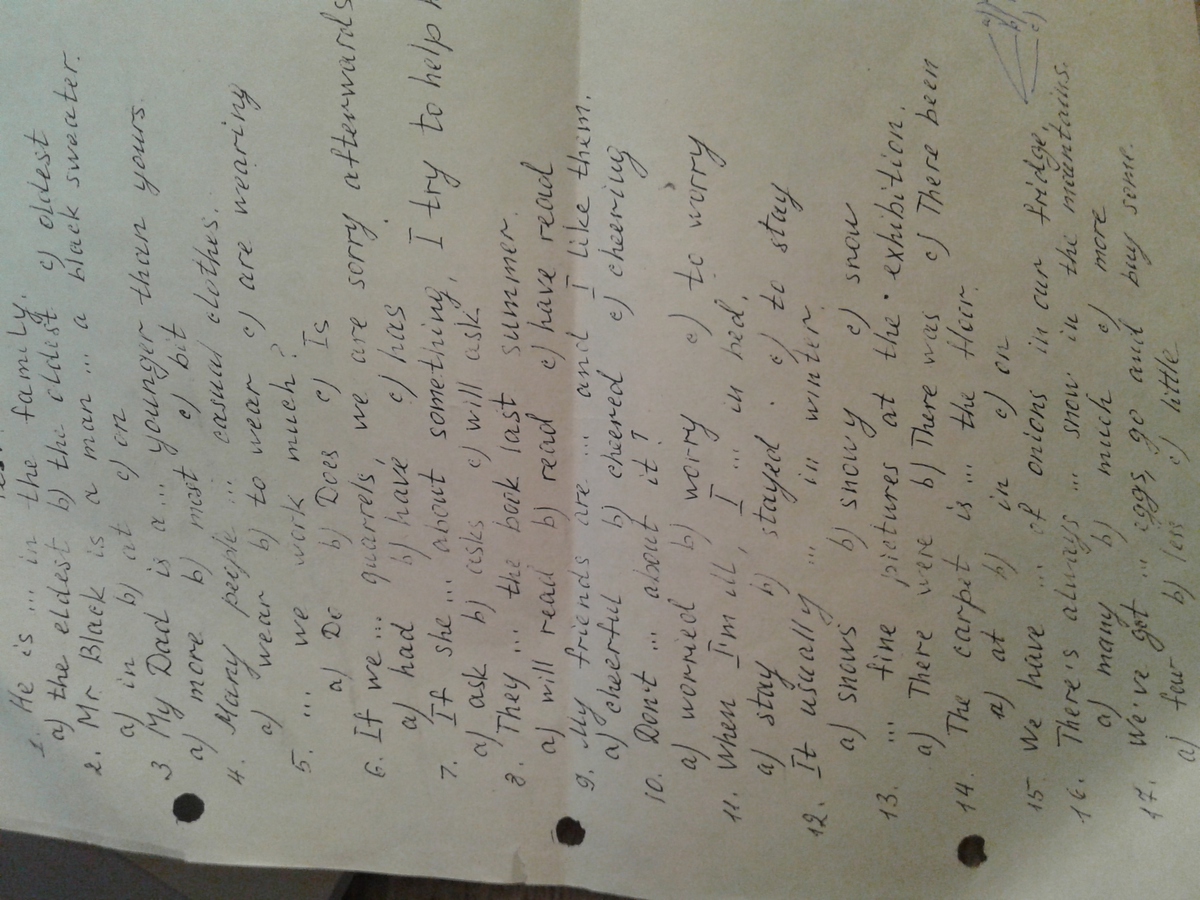 1. He is ... in the family.
a) the eldest b) the oldest c) oldest
2. Mr. Black is a man ... a black sweater.
a) in b) at c) on
3 My Dad is a ... younger than yours.
a) more b) most c) bit
4. Many people ... casual clothes.
a) wear b) to wear c) are wearing
5. ... we work much?
a) Do b) Does c) Is
6. If we ... quarrels we are sorry afterwards
a) had b) have c) has
7. If she ... about something, I try to help
a) ask b) asks c) will ask
8. They ... the book last summer.
a) will read b) read c) have read
9. My friends are ... and I like them.
a) cheerful b) cheered c) cheering
10. Don't ... about it?
a) worried b) worry c) to worry
11. When I'm ill, I ... in bed.
a) stay b) stayed c) to stay
12. It usually ... in winter.
a) snows b) snowy c) snow
13. ... fine pictures at the exhibition.
a) There were b) There was c) There been
14. The carpet is ... the floor.
a) at b) in c) on
15. We have ... of onions in our fridge.
a)
b)
c)
16. There's always ... snow in the mountains.
a) many b) much c) more
17. We've got ... eggs, go and buy some.
a) few b) less c) little